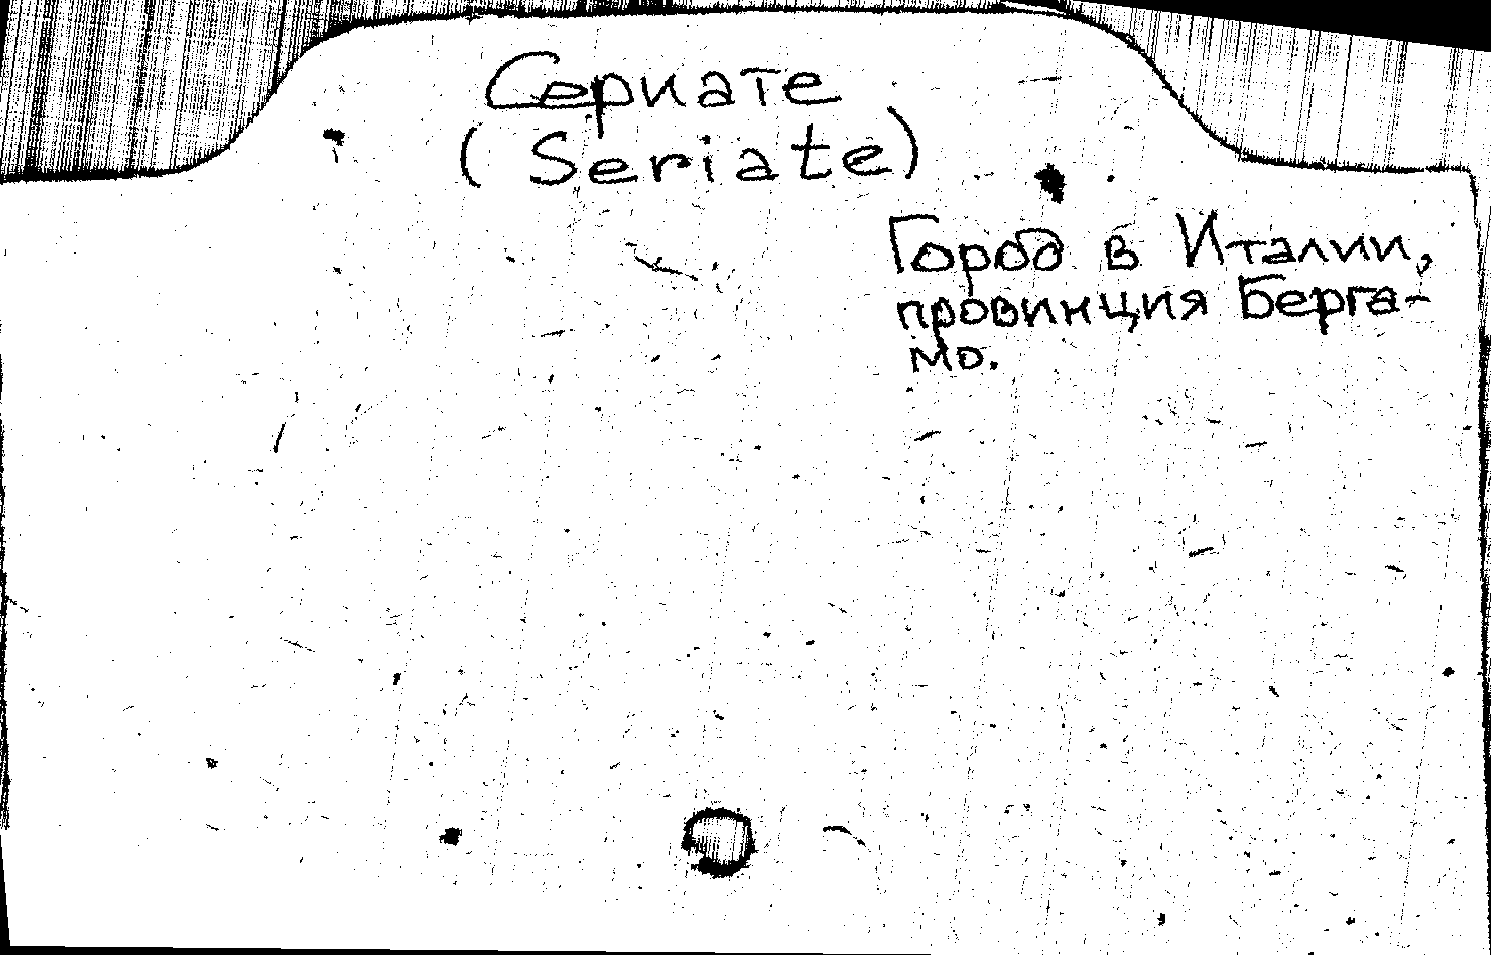 Сериате
(Seriate)
Город в Италии,
провинция Берга-
мо.